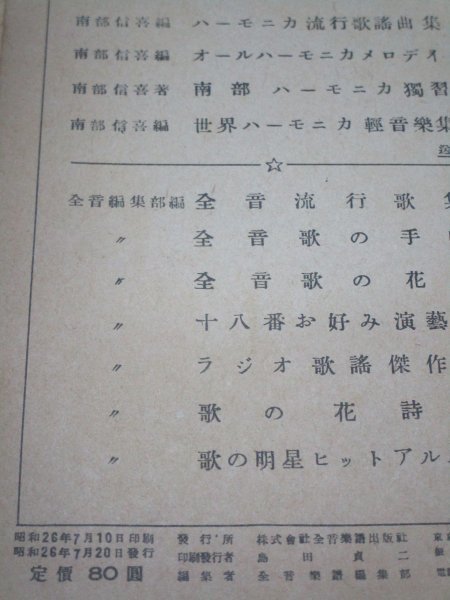 南部信喜編 ハーモニカ流行歌謠曲集
南部信喜編 オールハーモニカメロデイ
南部信喜著 南部 ハーモニカ 獨習
南部信喜編 世界ハーモニカ 輕音樂集
☆
全音編集部編 全音流行歌集
〃 全音歌の手
〃 全音歌の花
〃 十八番お好み演藝
〃 ラジオ歌謠傑作
〃 歌の花詩
〃 歌の明星ヒットアル
昭和26年7月10日印刷 發行所 株式會社全音樂譜出版社 東
昭和26年7月20日發行 印刷發行者 島田貞二 振
定價 80圓 編集者 全音樂譜編集部 電